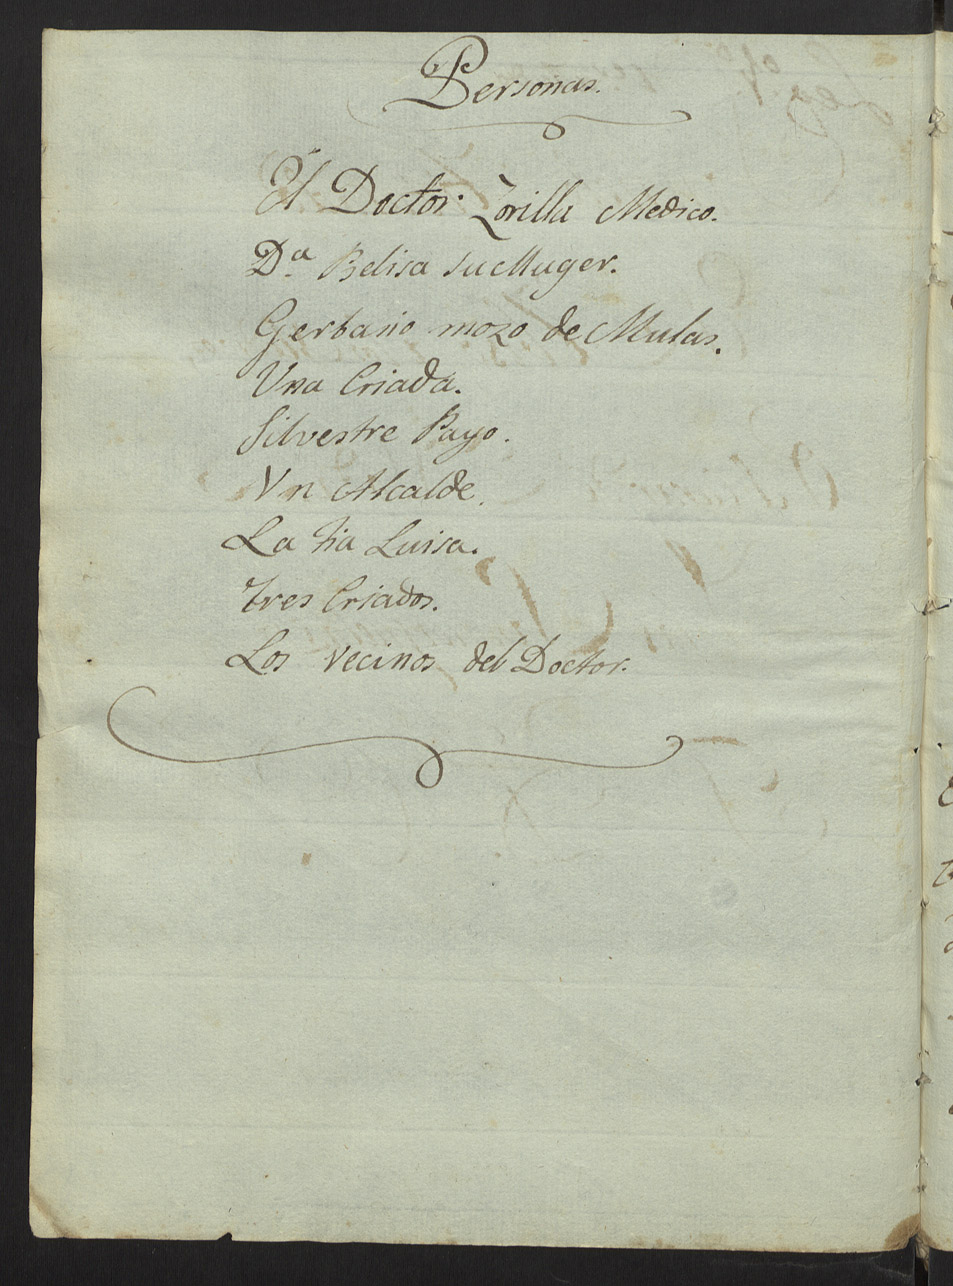 Personas.
El Doctor Zorilla Medico.
D.ª Belisa su Muger.
Gerbasio mozo de Mulas.
Una Criada.
Silvestre Payo.
Vn Alcalde.
La tia Luisa.
Tres Criados.
Los vecinos del Doctor.